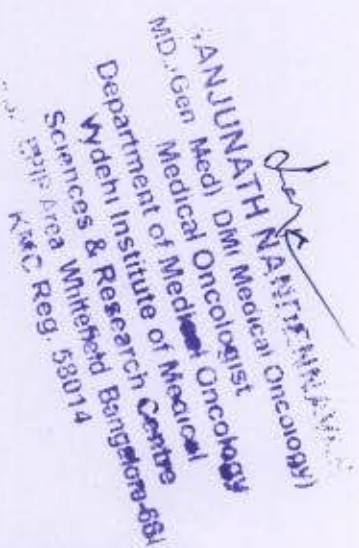 MD.,(Gen Med) DM( Medical Oncology)
Medical Oncologist
Department of Medical Oncology
Vydehi Institute of Medical
Sciences & Research Centre
Area Whitefield Bangalore-66
KMC Reg. 58014